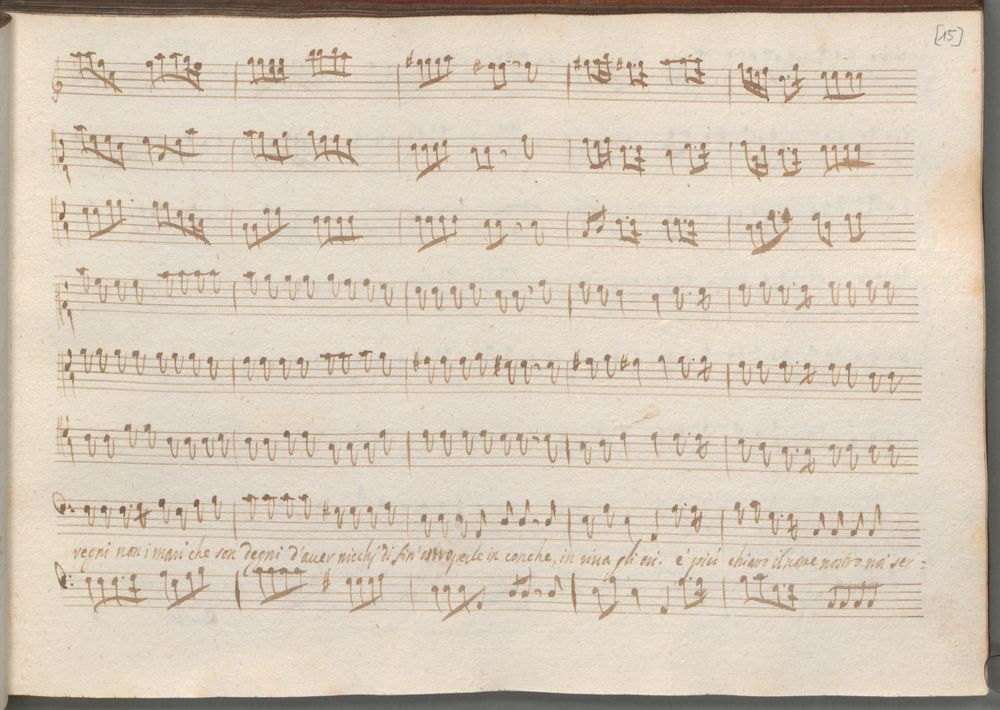 [15]
regni non i mari che son degni d'aver nicchj di fin' ostro, perle in conche, in riva gli è più chiaro il nome nostro noi ser=